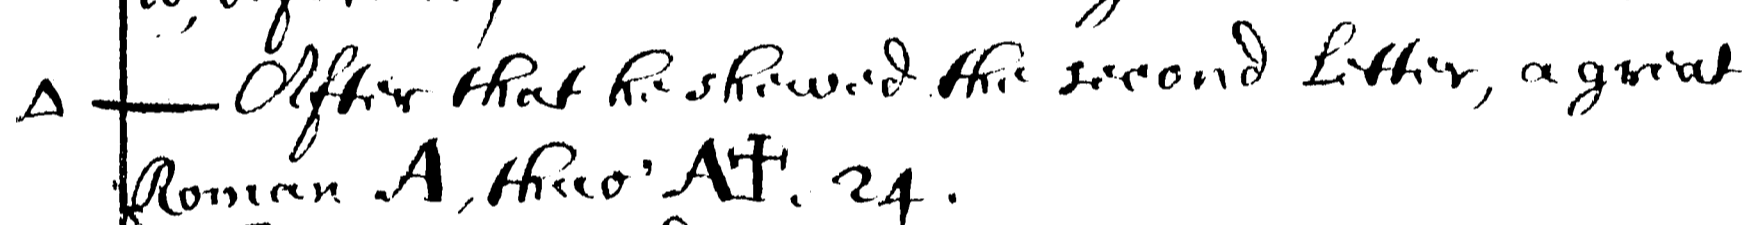 Δ — After that he shewed the second Letter, a great
Roman A, thus' A✝. 24.